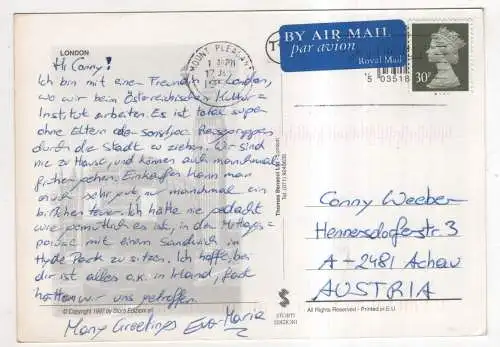 LONDON
Hi Conny!
Ich bin mit einer Freundin in London,
wo wir beim Österreichischen Kultur-
Institut arbeiten. Es ist total super
ohne Eltern oder sonstige
durch die Stadt zu ziehen. Wir sind
nie zu Hause, und können auch manchmal
früher gehen. Einkaufen kann man
auch sehr gut, nur manchmal ein
bißchen teuer. Ich hätte nie gedacht
wie gemütlich es ist, in der Mittags-
pause mit einem Sandwich im
Hyde Park zu sitzen. Ich hoffe bei
dir ist alles o.k. in Irland, fast
hätten wir uns getroffen.
Many Greetings Eva-Maria
© Copyright 1997 by Storti Edizioni srl
Thomas Benacci Ltd - London
Tel. (071) 9240635
STORTI
EDIZIONI
MOUNT PLEASANT
BY AIR MAIL
par avion
Royal Mail
5 03516
30P
Conny Weeber
Hennersdorferstr. 3
A-2481 Achau
AUSTRIA
All Rights Reserved - Printed in E.U.